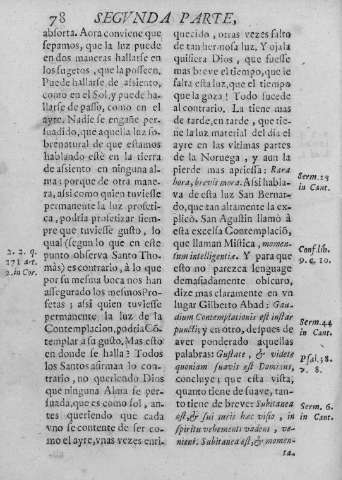 78 SEGVNDA PARTE,
absorta. Aora conviene que
sepamos, que la luz puede
en dos maneras hallarse en
los sugetos, que la posseen.
Puede hallarse de assiento,
como en el Sol, y puede ha-
llarse de passo, como en el
ayre. Nadie se engañe per-
suadido, que aquella luz so-
brenatural de que estamos
hablando estè en la tierra
de assiento en ninguna al-
ma: porque de otra mane-
ra, assi como quien tuviesse
permanente la luz profeti-
ca, podria profetizar siempre
que tuviesse gusto, lo
qual (segun lo que en este
punto observa Santo Tho-
màs) es contrario, à lo que
por su mesma boca nos han
assegurado los mesmos Pro-
fetas; assi quien tuviesse
permanente la luz de la
Contemplacion, podria Cō-
templar a su gusto. Mas esto
en donde se halla? Todos
los Santos afirman lo con-
trario, no queriendo Dios
que ninguna Alma se per-
suada, que es como sol, an-
tes queriendo que cada
vno se contente de ser co-
mo el ayre, vnas vezes enri-
2. 2. q.
171 art.
2. in Cor.
quecido, otras vezes falto
de tan hermosa luz. Y ojala
quisiera Dios, que fuesse
mas breve el tiempo, que le
falta esta luz, que el tiempo
que la goza! Todo sucede
al contrario. La tiene mas
de tarde, en tarde, que tie-
ne la luz material del dia el
ayre en las vltimas partes
de la Noruega, y aun la
pierde mas apriessa: Rara
hora, brevis mora. Assi habla-
va de esta luz San Bernar-
do, que tan altamente la ex-
plicò. San Agustin llamò à
esta excelsa Contemplaciõ,
que llaman Mistica, momen-
tum intelligentiæ. Y para que
esto no parezca lenguage
demasiadamente obscuro,
dize mas claramente en vn
lugar Gilberto Abad: Gau-
dium Contemplationis est instar
puncti; y en otro, despues de
aver ponderado aquellas
palabras: Gustate, & videte
quoniam suavis est Dominus,
concluye; que esta vista,
quanto tiene de suave, tan-
to tiene de breve: Subitanea
est, & sui meis hæc visio, in
spiritu vehementi vadens, ve-
niens: Subitanea est, & momen-
ta-
Serm. 23
in Cant.
Conf. lib.
9. c. 10.
Serm. 44
in Cant.
Psal. 38.
v. 8.
Serm. 6.
in Cant.